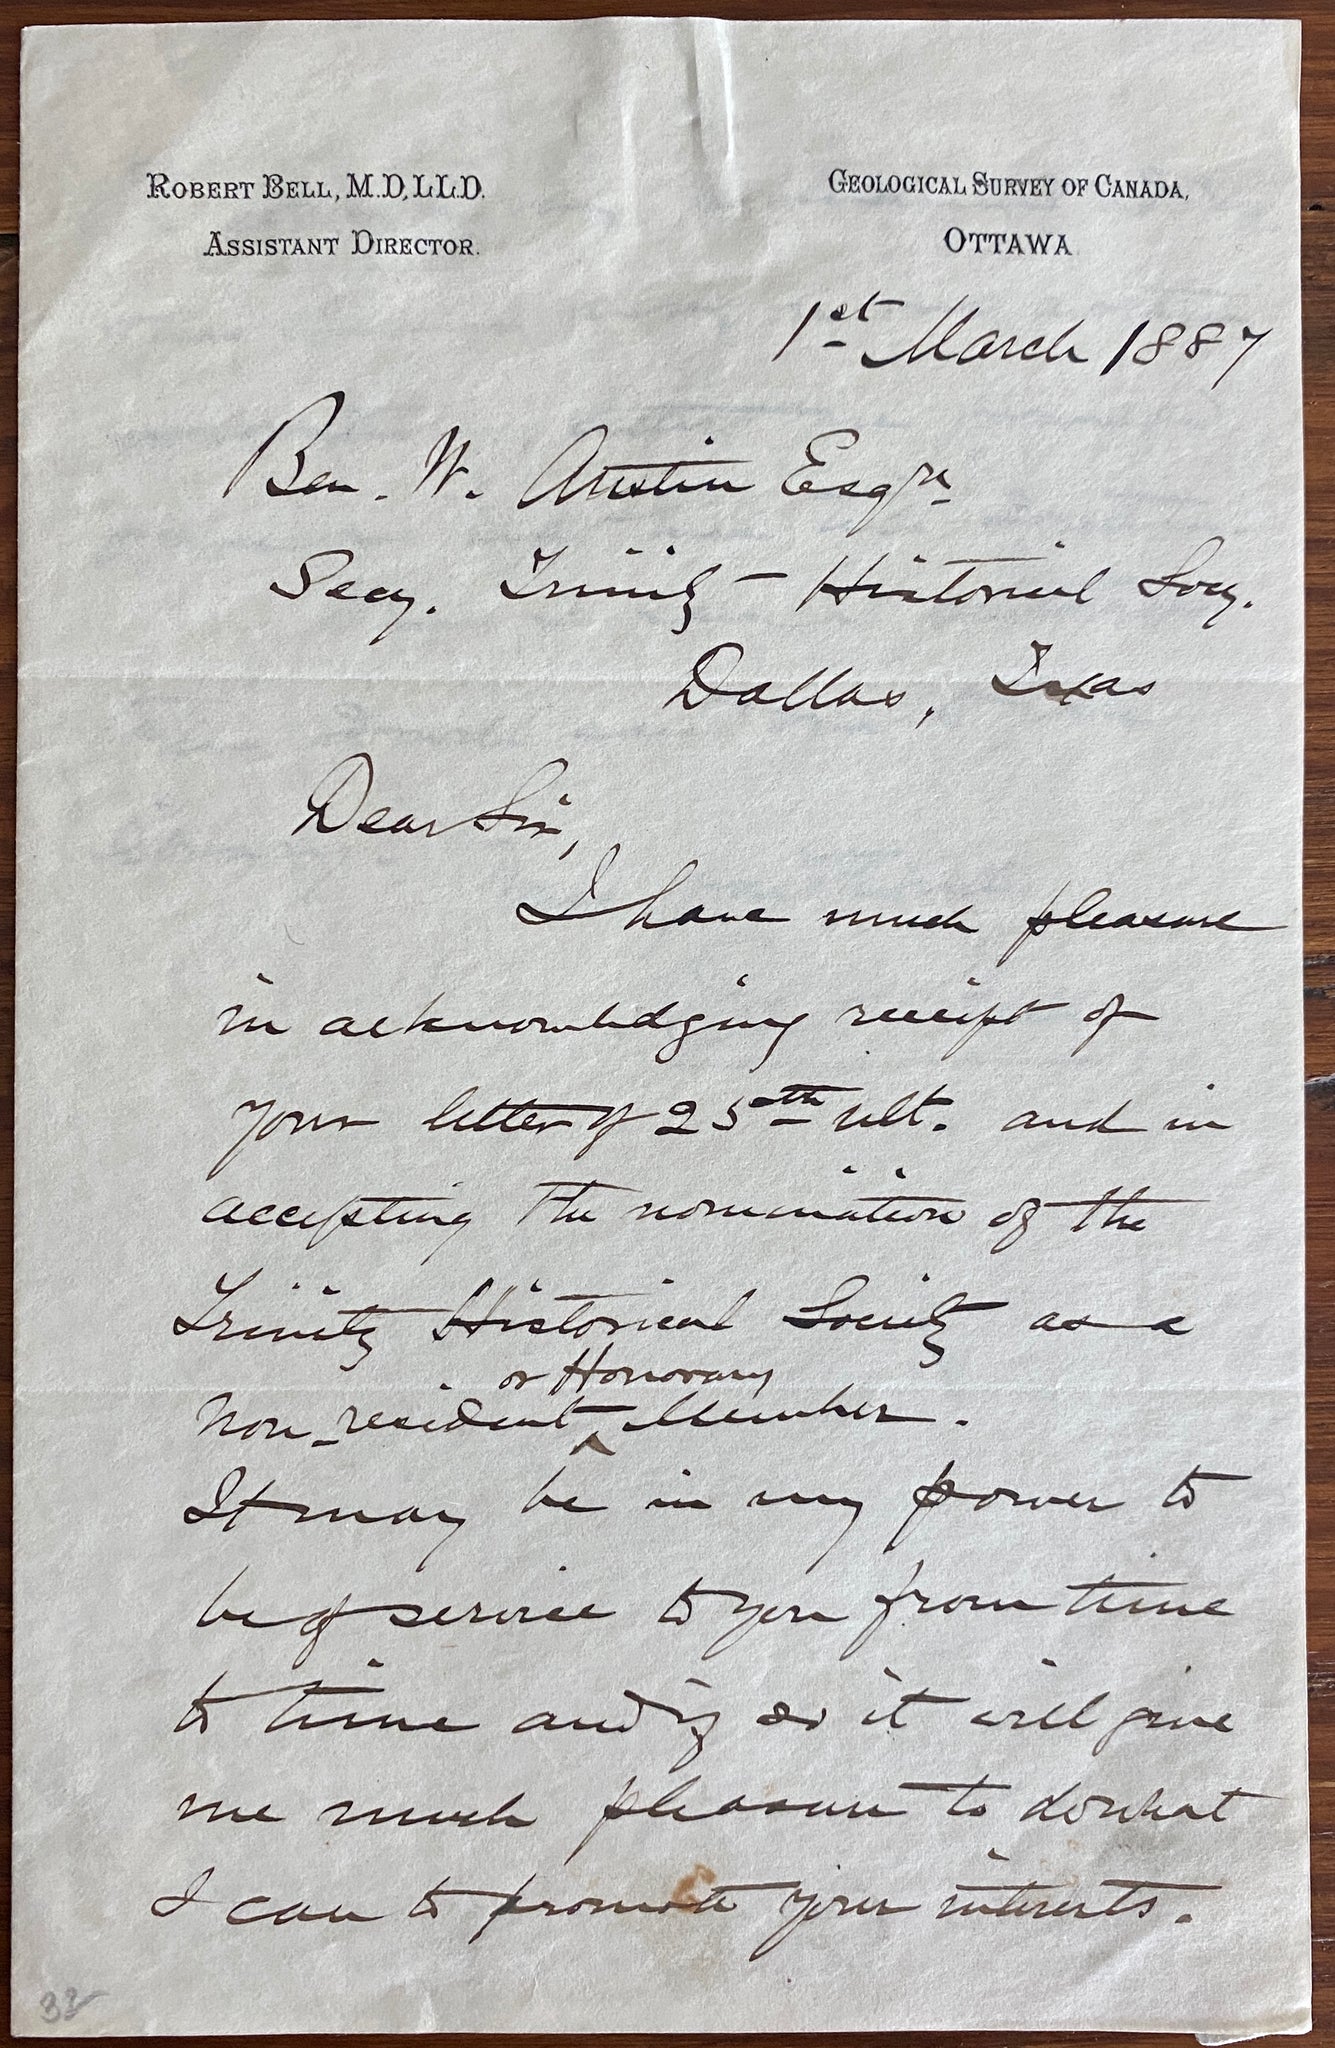 ROBERT BELL, M.D, LL.D.
ASSISTANT DIRECTOR.
GEOLOGICAL SURVEY OF CANADA,
OTTAWA
1st March 1887
Ben. W. Austin Esqre
Secy. Trinity - Historical Socy.
Dallas, Texas
Dear Sir,
I have much pleasure
in acknowledging receipt of
your letter of 25th ult. and in
accepting the nomination of the
Trinity Historical Society as a
or Honorary
Non-resident ^ Member.
It may be in my power to
be of service to you from time
to time and if so it will give
me much pleasure to do what
I can to promote your interests.